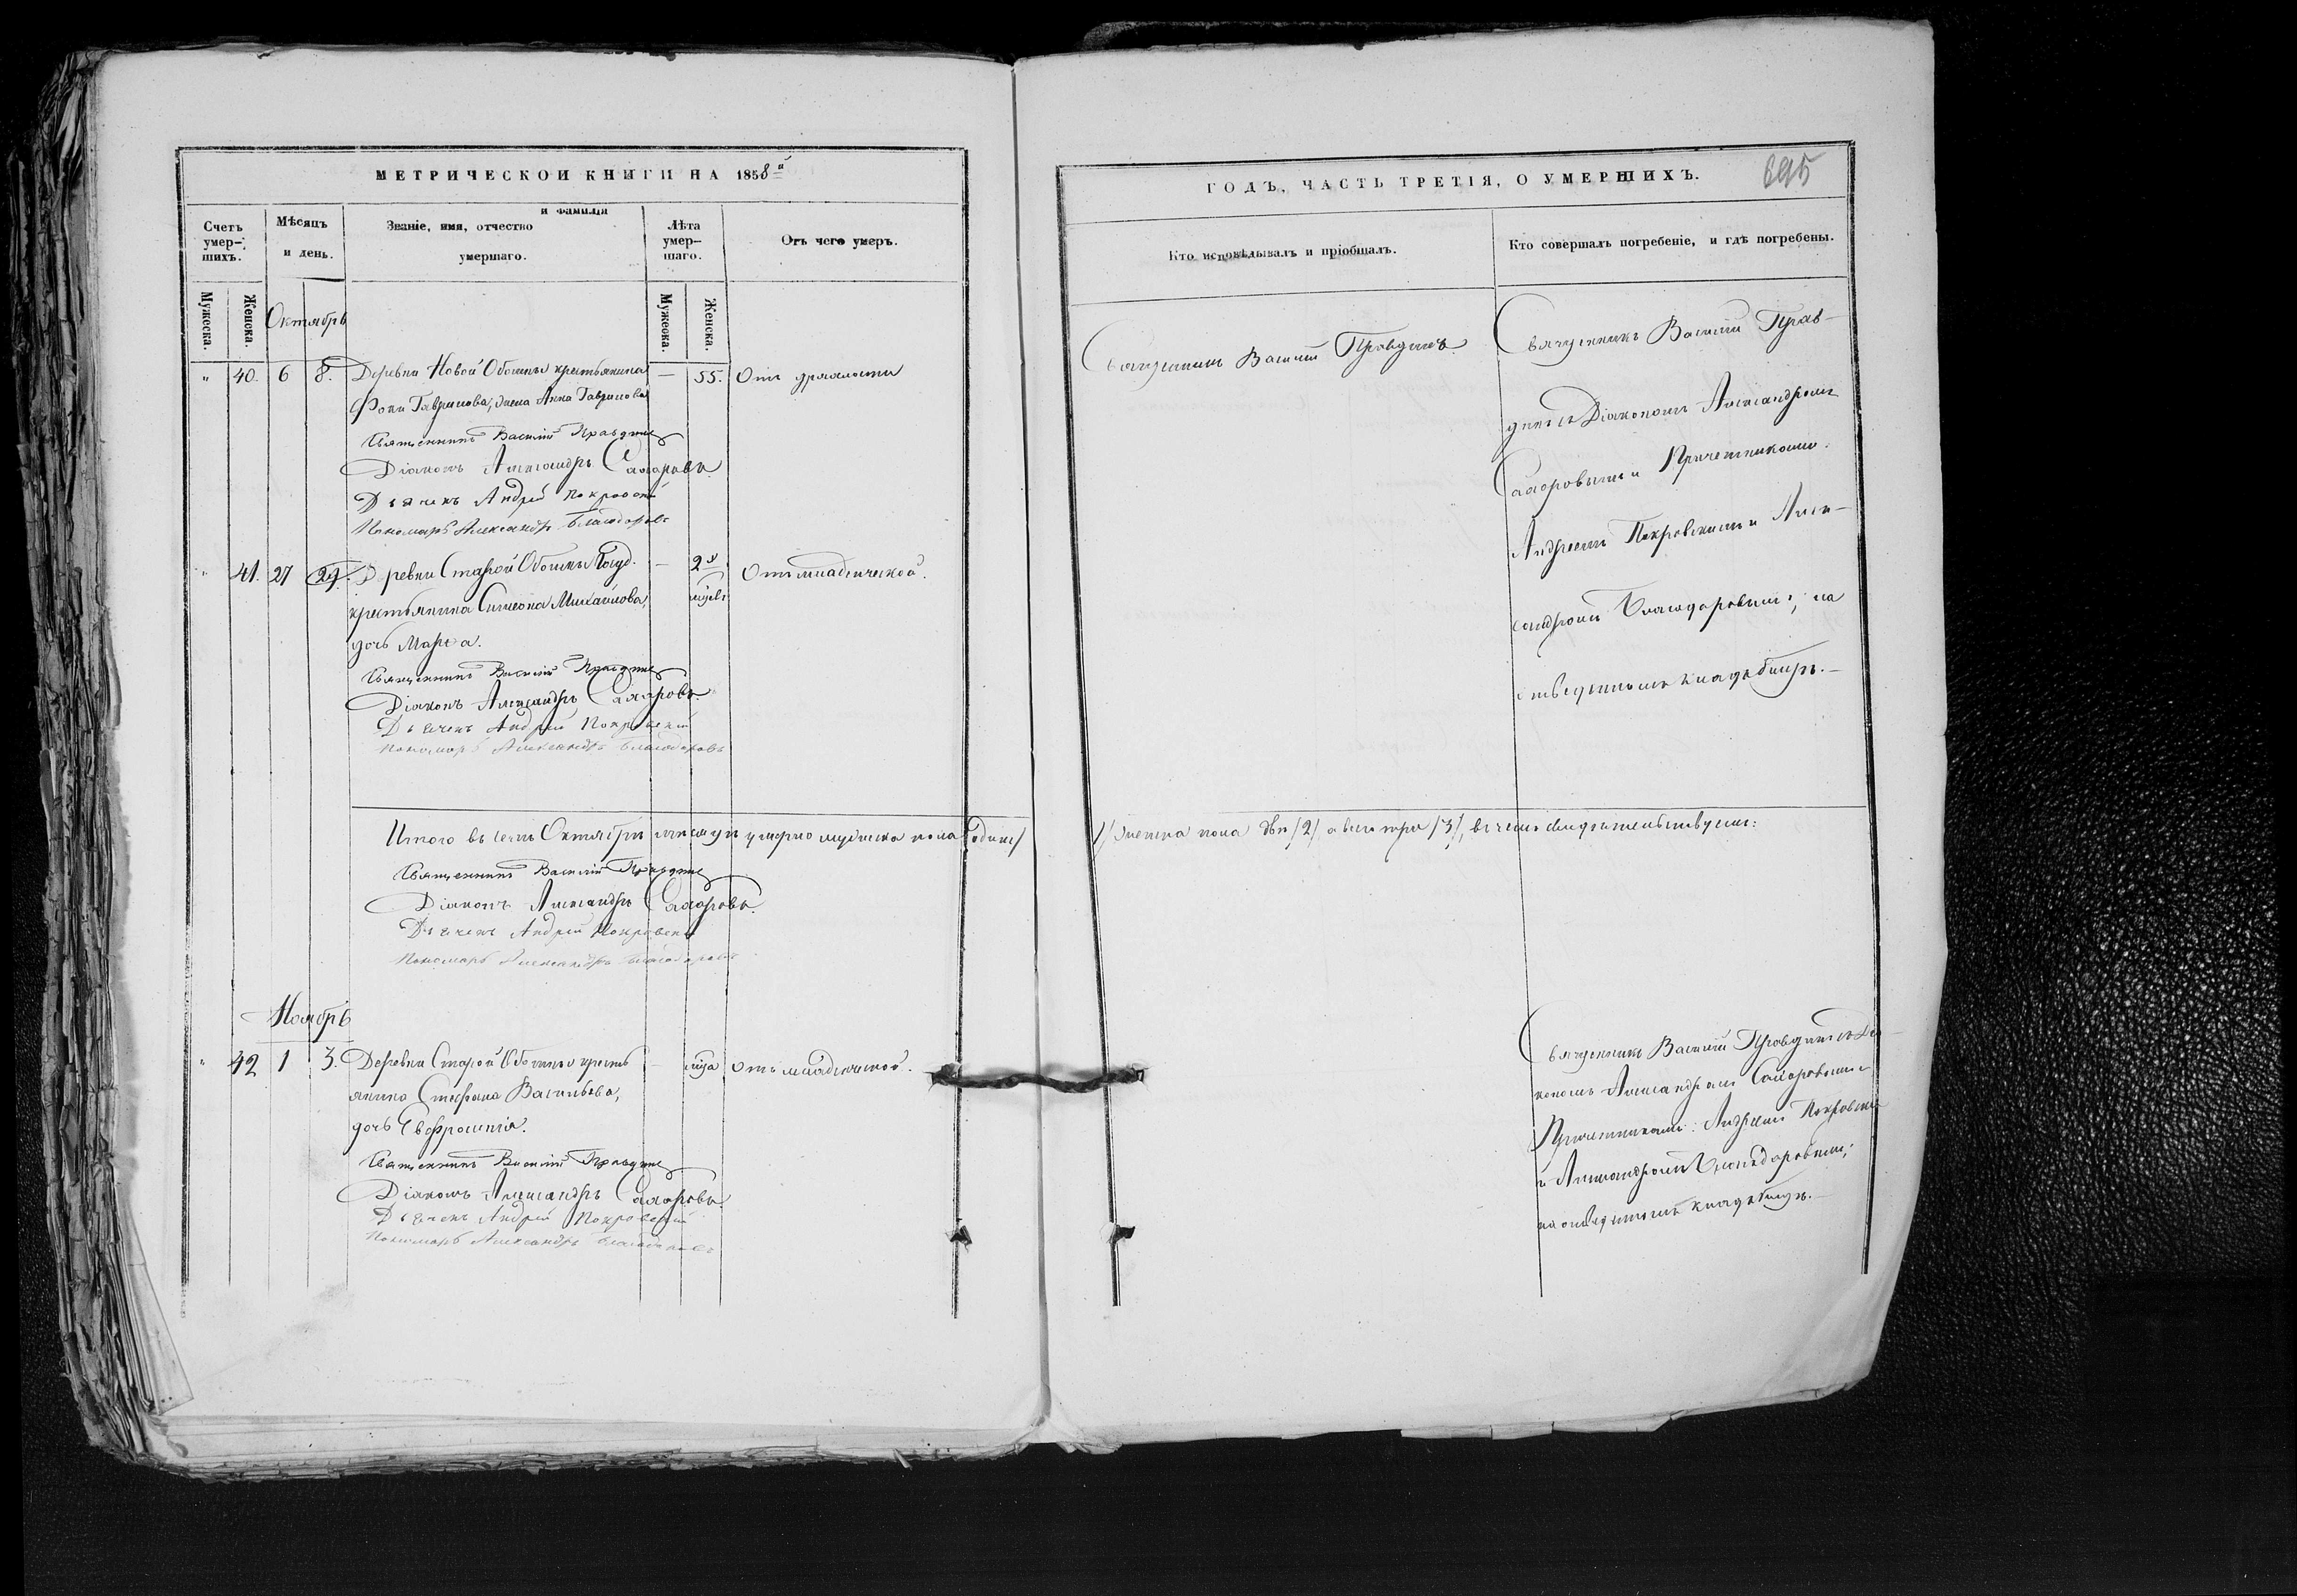 МЕТРИЧЕСКОЙ КНИГИ НА 1858й
Счетъ умер-шихъ.
Мѣсяцъ и день.
Званіе, имя, отчество и фамилія умершаго.
Лѣта умер-шаго.
Отъ чего умеръ.
Мужеска.
Женска.
Октябрь
Мужеска.
Женска.
" 40. 6 8. Деревни Новой Обошны крестьянина — 55. Отъ дряхлости
Фоки Гаврилова, жена Анна Гаврилова
Священникъ Василій Правдинъ
Діаконъ Александръ Сахаровъ
Дьячекъ Андрей Покровскій
Пономарь Александръ Благодаровъ
" 41. 27 29. Деревни Старой Обошны Госуд. — 2х Отъ младенческой.
крестьянина Симеона Михайлова, мцевъ
дочь Марѳа.
Священникъ Василій Правдинъ
Діаконъ Александръ Сахаровъ.
Дьячекъ Андрей Покровскій
Пономарь Александръ Благодаровъ
Итого въ семъ Октябрѣ мѣсяцѣ умерло мужеска пола один /
Священникъ Василій Правдинъ
Діаконъ Александръ Сахаровъ.
Дьячекъ Андрей Покровскій
Пономарь Александръ Благодаровъ
Ноябрь
" 42 1 3. Деревни Старой Обошны кресть — мца Отъ младенческой.
янина Стефана Васильева,
дочь Евфросинія.
Священникъ Василій Правдинъ
Діаконъ Александръ Сахаровъ
Дьячекъ Андрей Покровскій
Пономарь Александръ Благодаровъ
ГОДЪ, ЧАСТЬ ТРЕТІЯ, О УМЕРШИХЪ.
695
Кто исповѣдывалъ и пріобщалъ.
Кто совершалъ погребеніе, и гдѣ погребены.
Священникъ Василій Правдинъ.
Священникъ Василій Прав-
динъ съ Діакономъ Александромъ
Сахаровымъ и Причетниками:
Андреемъ Покровскимъ и Алек-
сандромъ Благодаровымъ; на
отведенномъ кладбищѣ.—
1/ женска пола двѣ /2/ а всего три /3/, въ чемъ свидѣтельствуемъ:
Священникъ Василій Правдинъ съ Діа-
кономъ Александромъ Сахаровымъ и
Причетниками: Андреемъ Покровским
и Александромъ Благодаровымъ;
на отведенномъ кладбищѣ.—